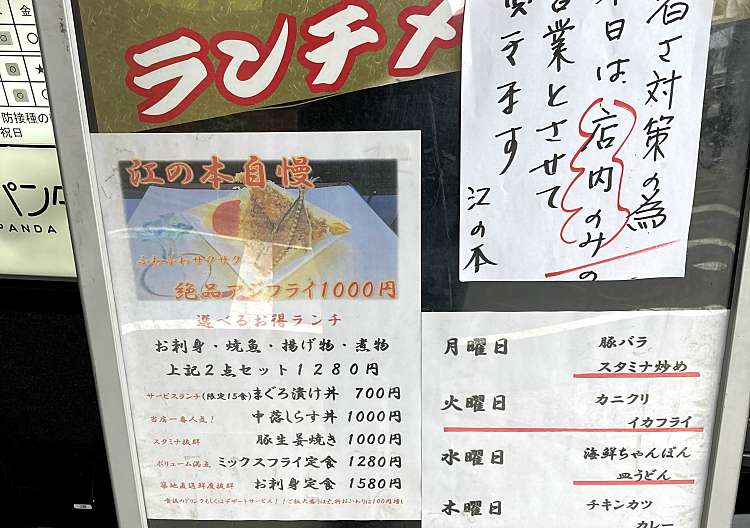 ランチメ
防接種の
祝日
パンダ
PANDA
暑さ対策の為
本日は、店内のみの
営業とさせて
頂きます
江の本
江の本自慢
ふわふわサクサク
絶品アジフライ1000円
選べるお得ランチ
お刺身・焼魚・揚げ物・煮物
上記2点セット1280円
サービスランチ(限定15食)まぐろ漬け丼 700円
当店一番人気! 中落しらす丼 1000円
スタミナ抜群 豚生姜焼き 1000円
ボリューム満点 ミックスフライ定食 1280円
築地直送鮮度抜群 お刺身定食 1580円
食後のドリンクもしくはデザートサービス!!ご飯大盛りは無料おかわりは100円増し
月曜日 豚バラ
スタミナ炒め
火曜日 カニクリ
イカフライ
水曜日 海鮮ちゃんぽん
皿うどん
木曜日 チキンカツ
カレー